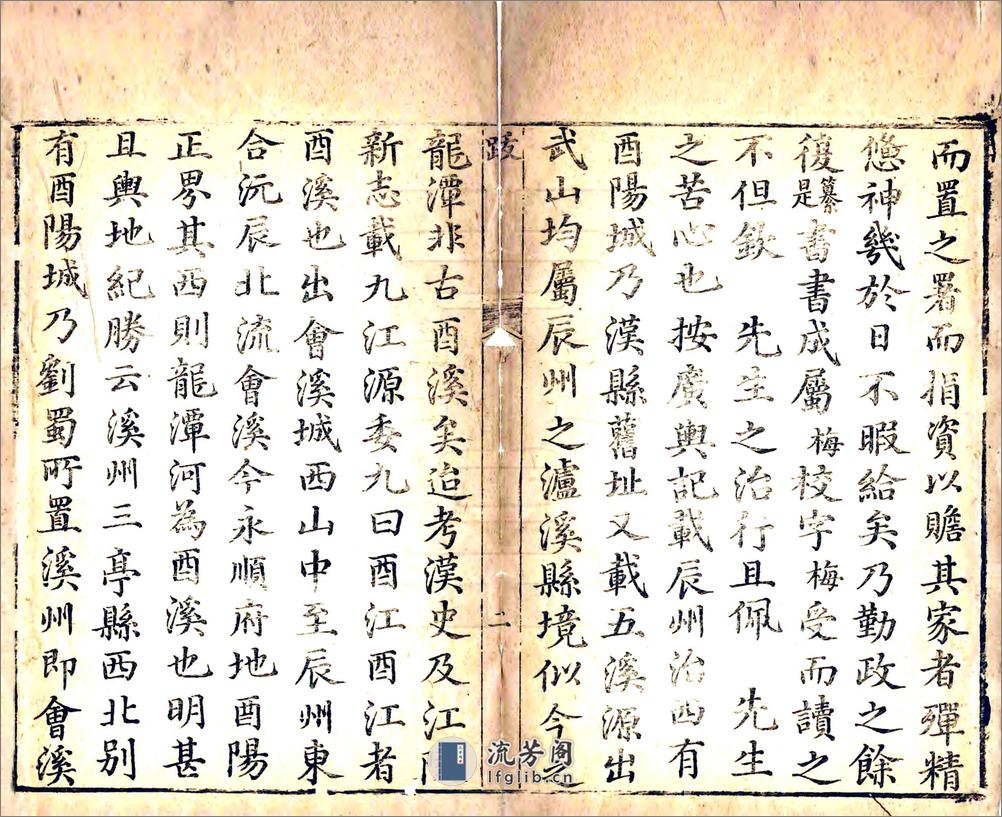 而置之署而捐資以贍其家者殫精
憊神幾於日不暇給矣乃勤政之餘
復是纂書書成屬梅校字梅受而讀之
不但欽 先生之治行且佩 先生
之苦心也按廣輿記載辰州治西有
酉陽城乃漢縣舊址又載五溪源出
武山均屬辰州之瀘溪縣境似今之
跋
二
龍潭非古酉溪矣迨考漢史及江
新志載九江源委九曰酉江酉江者
酉溪也出會溪城西山中至辰州東
合沅辰北流會溪今永順府地酉陽
正界其西則龍潭河為酉溪也明甚
且輿地紀勝云溪州三亭縣西北別
有酉陽城乃劉蜀所置溪州即會溪
流芳阁
lfglib.cn